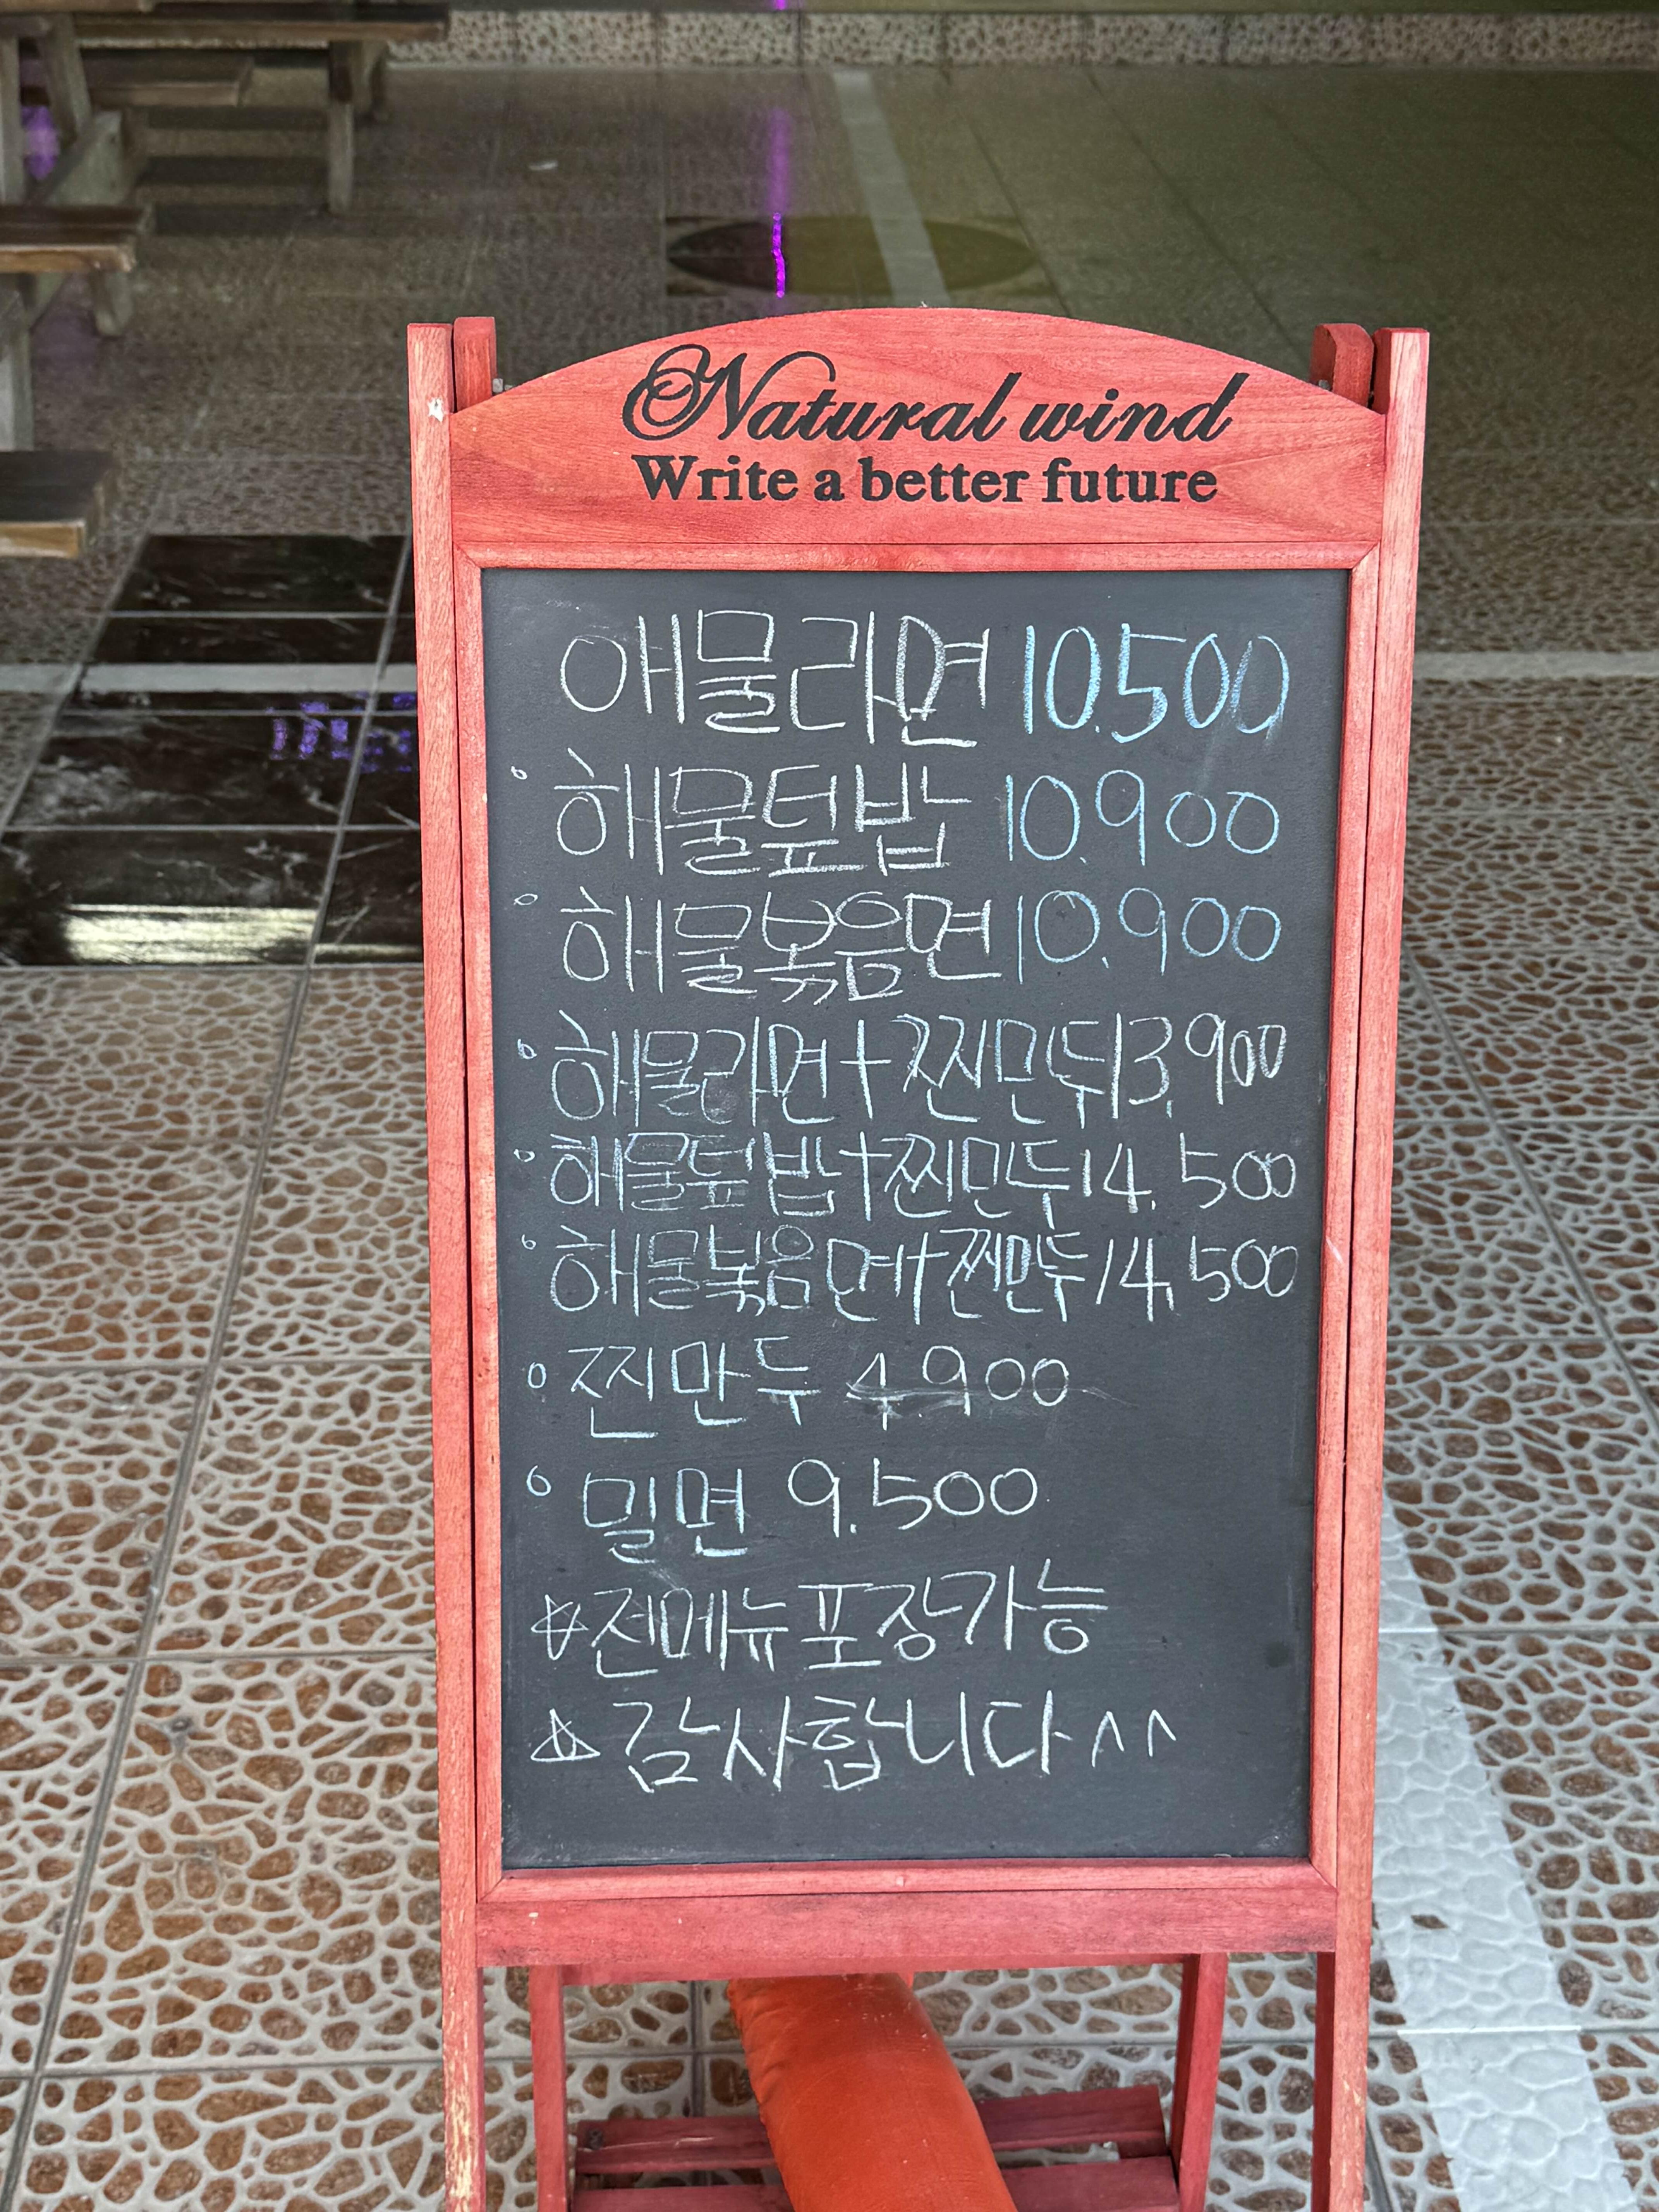 Natural wind
Write a better future
애물라면 10.500
해물덮밥 10.900
해물볶음면 10.900
해물라면+찐만두 13.900
해물덮밥+찐만두 14.500
해물볶음면+찐만두 14.500
찐만두 4.900
밀면 9.500
☆전메뉴포장가능
☆감사합니다^^